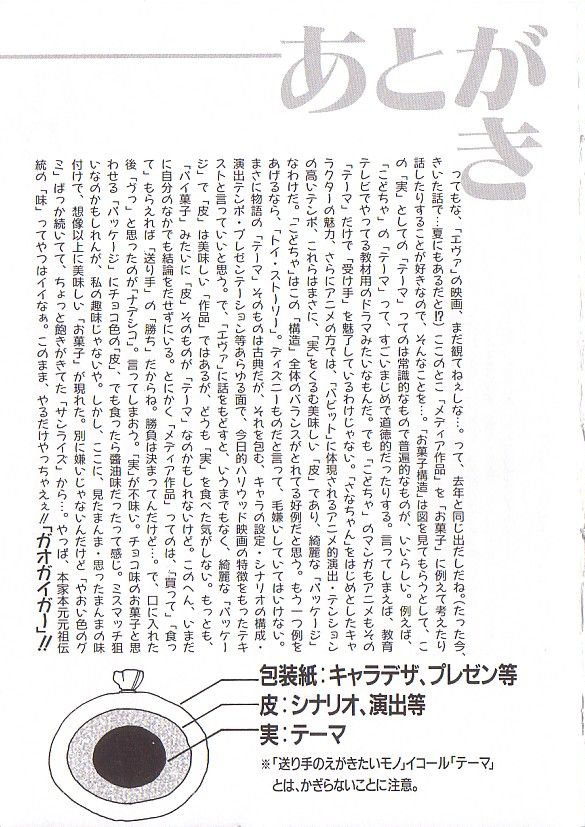 あとがき
ってもな、「エヴァ」の映画、まだ観てねぇしな…。って、去年と同じ出だしだね。(たった今、
きいた話で…夏にもあるだと!?)ここのとこ「メディア作品」を「お菓子」に例えて考えたり
話したりすることが好きなので、そんなことを…。「お菓子構造」は図を見てもらうとして、こ
の「実」としての「テーマ」ってのは常識的なもので普遍的なものが、いいらしい。例えば、
「こどちゃ」の「テーマ」って、すごいまじめで道徳的だったりする。言ってしまえば、教育
テレビでやってる教材用のドラマみたいなもんだ。でも「こどちゃ」のマンガもアニメもその
「テーマ」だけで「受け手」を魅了しているわけじゃない。「さなちゃん」をはじめとしたキャ
ラクターの魅力、さらにアニメの方では、「バビット」に体現されるアニメ的演出・テンション
の高いテンポ、これらはまさに、「実」をくるむ美味しい「皮」であり、綺麗な「パッケージ」
なわけだ。「こどちゃ」はこの「構造」全体のバランスがとれてる好例だと思う。もう一つ例を
あげるなら、「トイ・ストーリー」。ディズニーものだと言って、毛嫌いしていてはいけない。
まさに物語の「テーマ」そのものは古典だが、それを包む、キャラの設定・シナリオの構成・
演出テンポ・プレゼンテーション等あらゆる面で、今日的ハリウッド映画の特徴をもったテキ
ストと言っていいと思う。で、「エヴァ」に話をもどすと、いうまでもなく、綺麗な「パッケー
ジ」で「皮」は美味しい「作品」ではあるが、どうも「実」を食べた気がしない。もっとも、
「パイ菓子」みたいに「皮」そのものが「テーマ」なのかもしれないけど。このへん、いまだ
に自分のなかでも結論をだせずにいる。とにかく「メディア作品」ってのは、「買って」「食っ
て」もらえれば「送り手」の「勝ち」だからね。勝負は決まってんだけど…。で、口に入れた
後「ゔっ」と思ったのが「ナデシコ」。言ってしまおう。「実」が不味い。チョコ味のお菓子と思
わせる「パッケージ」にチョコ色の「皮」、でも食ったら醤油味だったって感じ。ミスマッチ狙
いなのかもしれんが、私の趣味じゃないや。しかし、ここに、見たまんま・思ったまんまの味
付けで、想像以上に美味しい「お菓子」が現れた。別に嫌いじゃないんだけど「やおい色のグ
ミ」ばっか続いてて、ちょっと飽きがきてた「サンライズ」から…。やっぱ、本家本元元祖伝
統の「味」ってやつはイイなぁ。このまま、やるだけやっちゃえぇ!!「ガオガイガー」!!
包装紙：キャラデザ、プレゼン等
皮：シナリオ、演出等
実：テーマ
※「送り手のえがきたいモノ」イコール「テーマ」
とは、かぎらないことに注意。